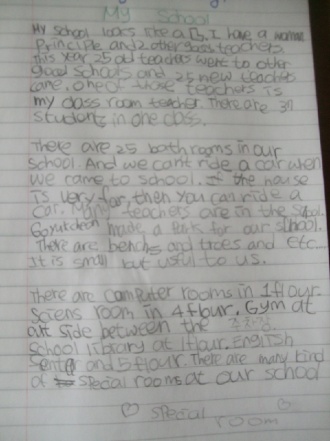 My School
My School looks like a ㄷ, I have a
Principle and 2 other good teachers.
this year 25 old teachers went to other
good schools and 25 new teachers
came, one of those teachers is
my class room teacher. There are 31
students in one class.
There are 25 bathrooms in our
school. And we cant ride a car when
we came to school. If the house
is very far, then you can ride a
car. Many teachers are in the school.
made a Park for our school.
There are benchs and trees and etc.
It is small but useful to us.
There are computer rooms in 1 flour.
Sciens room in 4 flour. Gym at
side between the
school library at 1 flour. English
and 5 flour. There are many kind
of special rooms at our school
♡ special room